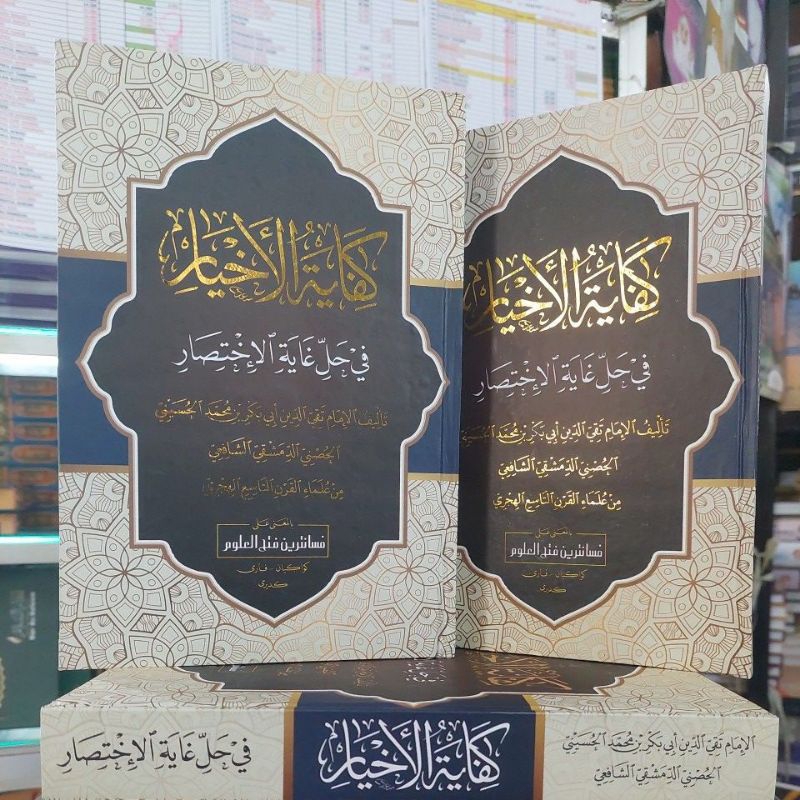 كفاية الأخيار
في حل غاية الاختصار
تأليف الإمام تقي الدين أبي بكر بن محمد الحسيني
الحصني الدمشقي الشافعي
من علماء القرن التاسع الهجري
بالمعنى على
فسانترين فتح العلوم
كواكيان - فاري
كديري
كفاية الأخيار
في حل غاية الاختصار
تأليف الإمام تقي الدين أبي بكر بن محمد الحسيني
الحصني الدمشقي الشافعي
من علماء القرن التاسع الهجري
بالمعنى على
فسانترين فتح العلوم
كواكيان - فاري
كديري
الإمام تقي الدين أبي بكر بن محمد الحسيني
الحصني الدمشقي الشافعي
كفاية الأخيار
في حل غاية الاختصار